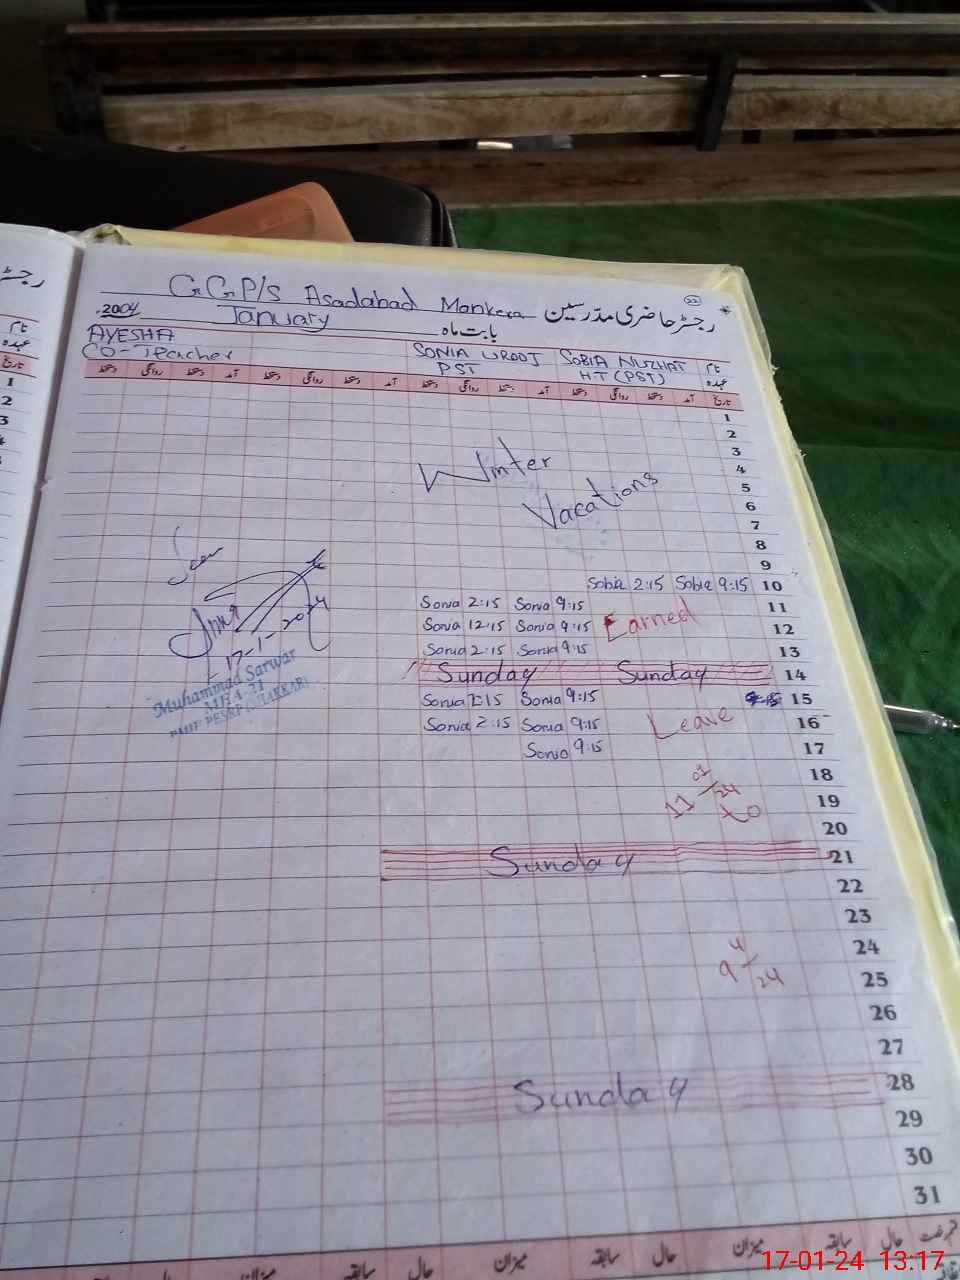 رجسٹر
نام
عہدہ
تاریخ
1
2
3
22
G.G.P/S Asadabad Mankera رجسٹر حاضری مدرسین
2004 January بابت ماہ
AYESHA SONIA UROOJ SOBIA NUZHAT نام
CO-Teacher PST H.T (PST) عہدہ
دستخط روانگی دستخط آمد دستخط روانگی دستخط آمد دستخط روانگی دستخط آمد دستخط روانگی دستخط آمد تاریخ
1
2
3
Winter 4
Vacations 5
6
7
8
Seen 9
Sobia 2:15 Sobia 9:15 10
Sonia 2:15 Sonia 9:15 11
Sonia 12:15 Sonia 9:15 Earned 12
Sonia 2:15 Sonia 9:15 13
17-1-2024
Muhammad Sarwar
Sunday Sunday 14
Sonia 2:15 Sonia 9:15 9:15 15
Sonia 2:15 Sonia 9:15 Leave 16
Sonia 9:15 17
18
11 01/24 19
to 20
Sunday 21
22
23
24
9 4/24 25
26
27
Sunday 28
29
30
31
میزان سابقہ حال میزان سابقہ حال میزان سابقہ حال
17-01-24 13:17